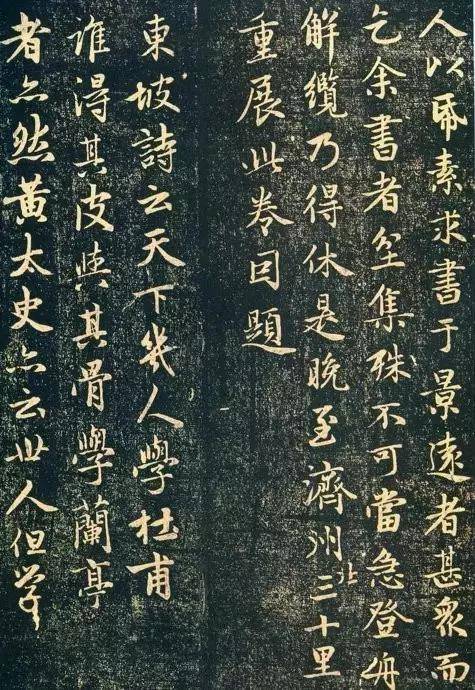 人以帋素求書于景遠者甚衆而
乞余書者坌集殊不可當急登舟
解纜乃得休是晚至濟州北三十里
重展此卷因題
東坡詩云天下幾人學杜甫
誰得其皮與其骨學蘭亭
者亦然黃太史亦云世人但學